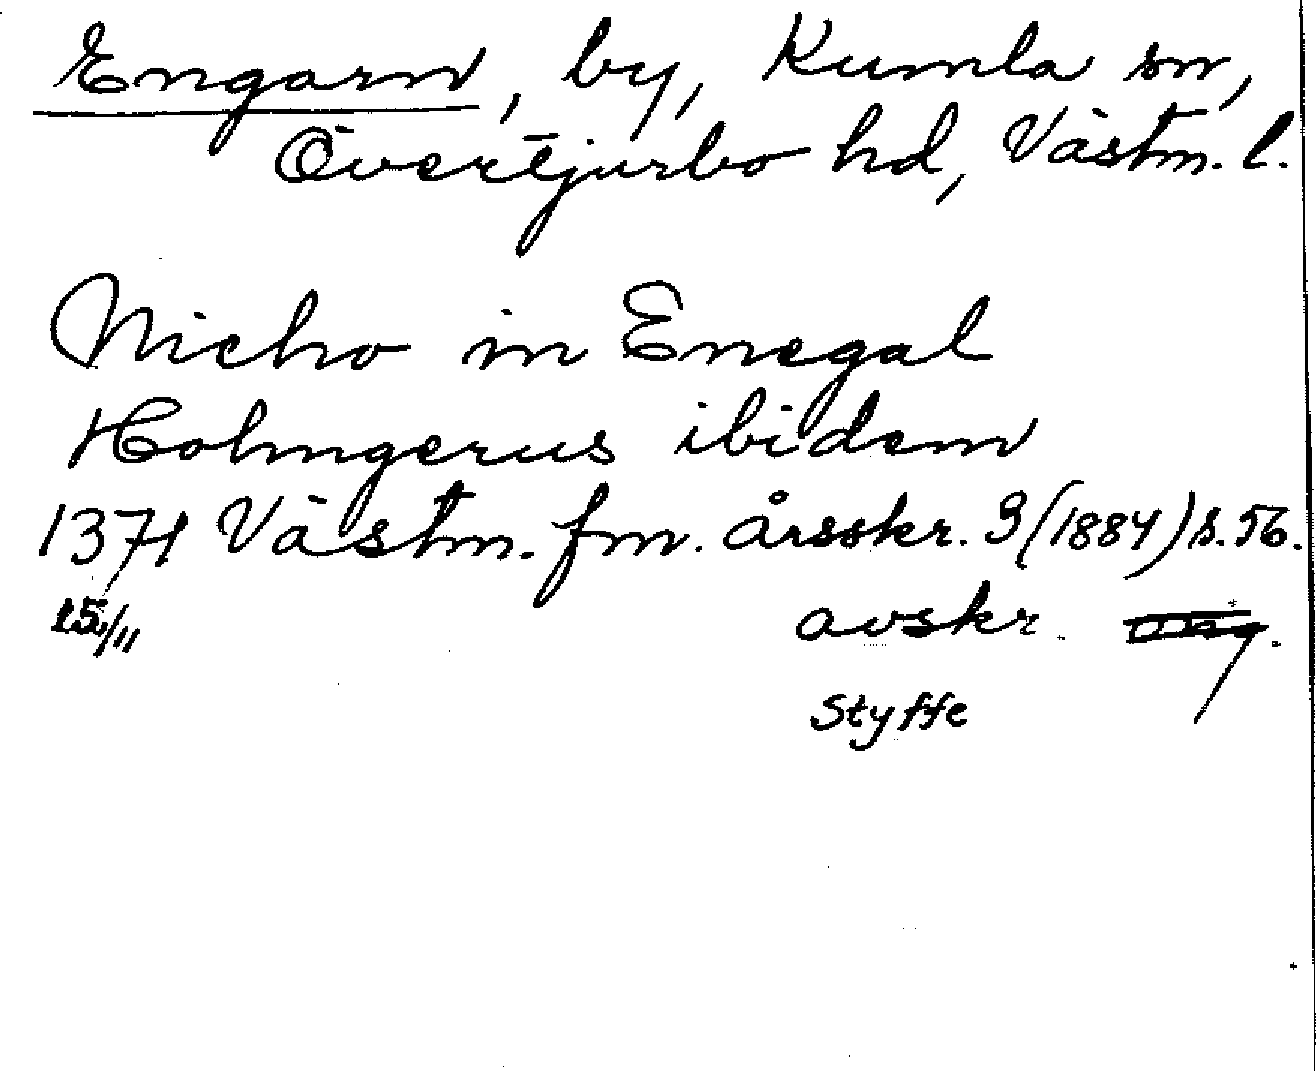 Engarn, by, Kumla sn,
Övertjurbo hd, Västm. l.
Nicho in Enegal
Holmgerus ibidem
1371 Västm. fm. årsskr. 3 (1884) s. 56.
15/11 avskr.
Styffe